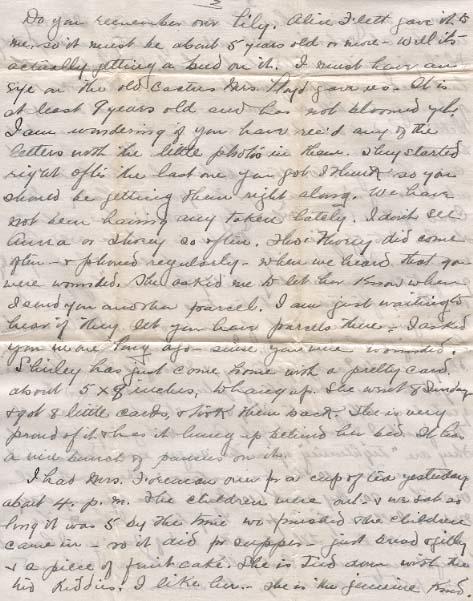 2
Do you remember our Lily. Alice Flett gave it to
me, so it must be about 5 years old or more - Well it's
actually getting a bud on it. I must have an
eye on the old Cactus Mrs. Lloyd gave us. It is
at least 9 years old and has not bloomed yet.
I am wondering if you have rec'd any of the
letters with the little photos in them. They started
right after the last one you got I think, so you
should be getting them right along. We have
not been having any taken lately. I don't see
Anna or so often. Tho did come
often - & phoned regularly - when we heard that you
were wounded. She asked me to let her know when
I send you another parcel. I am just waiting to
hear if they let you have parcels there - I asked
you in one long ago - since you were wounded.
Shirley has just come home with a pretty card
about 5 x 9 inches, to hang up. She went 8 Sundays
& got 8 little cards, & took them back. She is very
proud of it & has it hung up behind her bed. It has
a nice bunch of pansies on it.
I had Mrs. Foreman over for a cup of tea yesterday
about 4. p.m. The children were out - & we sat so
long it was 5 by the time we finished & the children
came in - so it did for supper - just bread & jelly
& a piece of fruit cake. She is tied down with the
kiddies. I like her - She is the genuine kind.